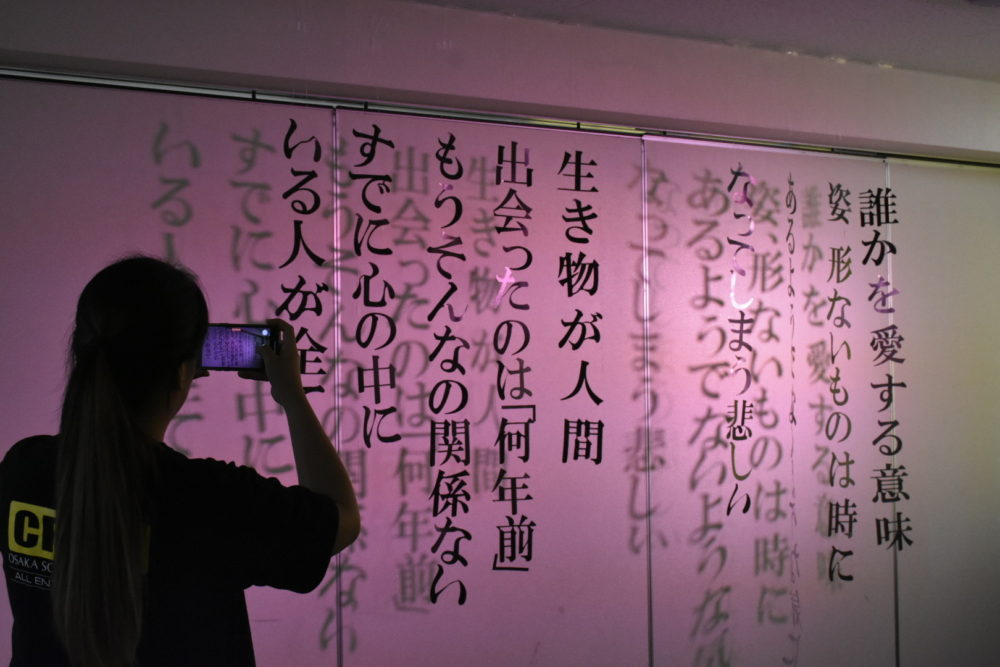 誰かを愛する意味
姿、形ないものは時に
あるようでないような気
なってしまう悲しい
生き物が人間
出会ったのは「何年前」
もうそんなの関係ない
すでに心の中に
いる人が全て
OSAKA
ALL